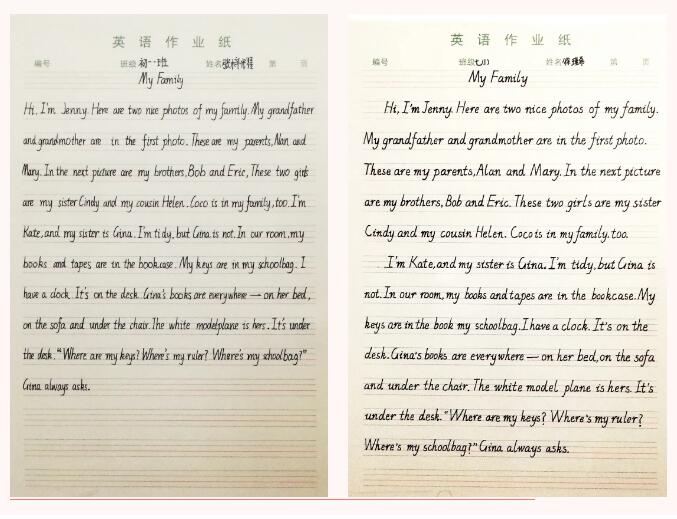 英语作业纸
编号 班级 初一·班 姓名 第 页
My Family
Hi, I'm Jenny. Here are two nice photos of my family. My grandfather
and grandmother are in the first photo. These are my parents, Alan and
Mary. In the next picture are my brothers, Bob and Eric, These two girls
are my sister Cindy and my cousin Helen. Coco is in my family, too. I'm
Kate, and my sister is Gina. I'm tidy, but Gina is not. In our room, my
books and tapes are in the bookcase. My keys are in my schoolbag. I
have a clock. It's on the desk. Gina's books are everywhere — on her bed,
on the sofa and under the chair. The white modelplane is hers. It's under
the desk. "Where are my keys? Where's my ruler? Where's my schoolbag?"
Gina always asks.
英语作业纸
编号 班级 七(1) 姓名 第 页
My Family
Hi, I'm Jenny. Here are two nice photos of my family.
My grandfather and grandmother are in the first photo.
These are my parents, Alan and Mary. In the next picture
are my brothers, Bob and Eric. These two girls are my sister
Cindy and my cousin Helen. Coco is in my family, too.
I'm Kate, and my sister is Gina. I'm tidy, but Gina is
not. In our room, my books and tapes are in the bookcase. My
keys are in the book my schoolbag. I have a clock. It's on the
desk. Gina's books are everywhere — on her bed, on the sofa
and under the chair. The white model plane is hers. It's
under the desk. "Where are my keys? Where's my ruler?
Where's my schoolbag?" Gina always asks.